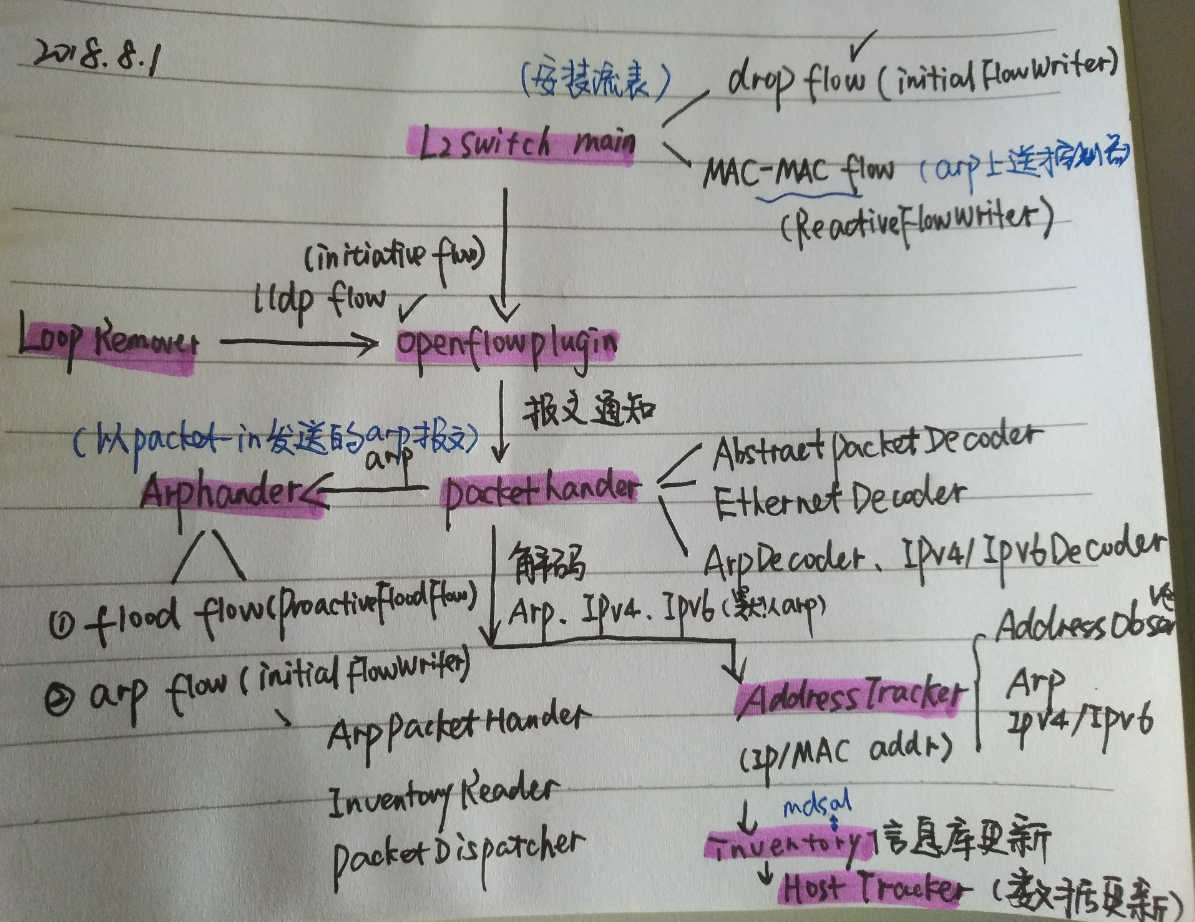 2018.8.1
(安装流表)
drop flow (initialFlowWriter)
L2switch main
MAC-MAC flow (arp上送控制器)
(ReactiveFlowWriter)
(initiative flow)
lldp flow
Loop Remover
openflowplugin
报文通知
(以packet-in发送的arp报文)
arp
Arphander
packethander
AbstractpacketDecoder
EthernetDecoder
ArpDecoder、IPv4/IPv6Decoder
解码
Arp、IPv4、IPv6(默认arp)
① flood flow(ProactiveFloodFlow)
② arp flow (initialFlowWriter)
ArpPacketHander
InventoryReader
PacketDispatcher
AddressTracker
(IP/MAC addr)
AddressObserve
Arp
IPv4/IPv6
mdsal
inventory信息库更新
Host Tracker (数据更新)